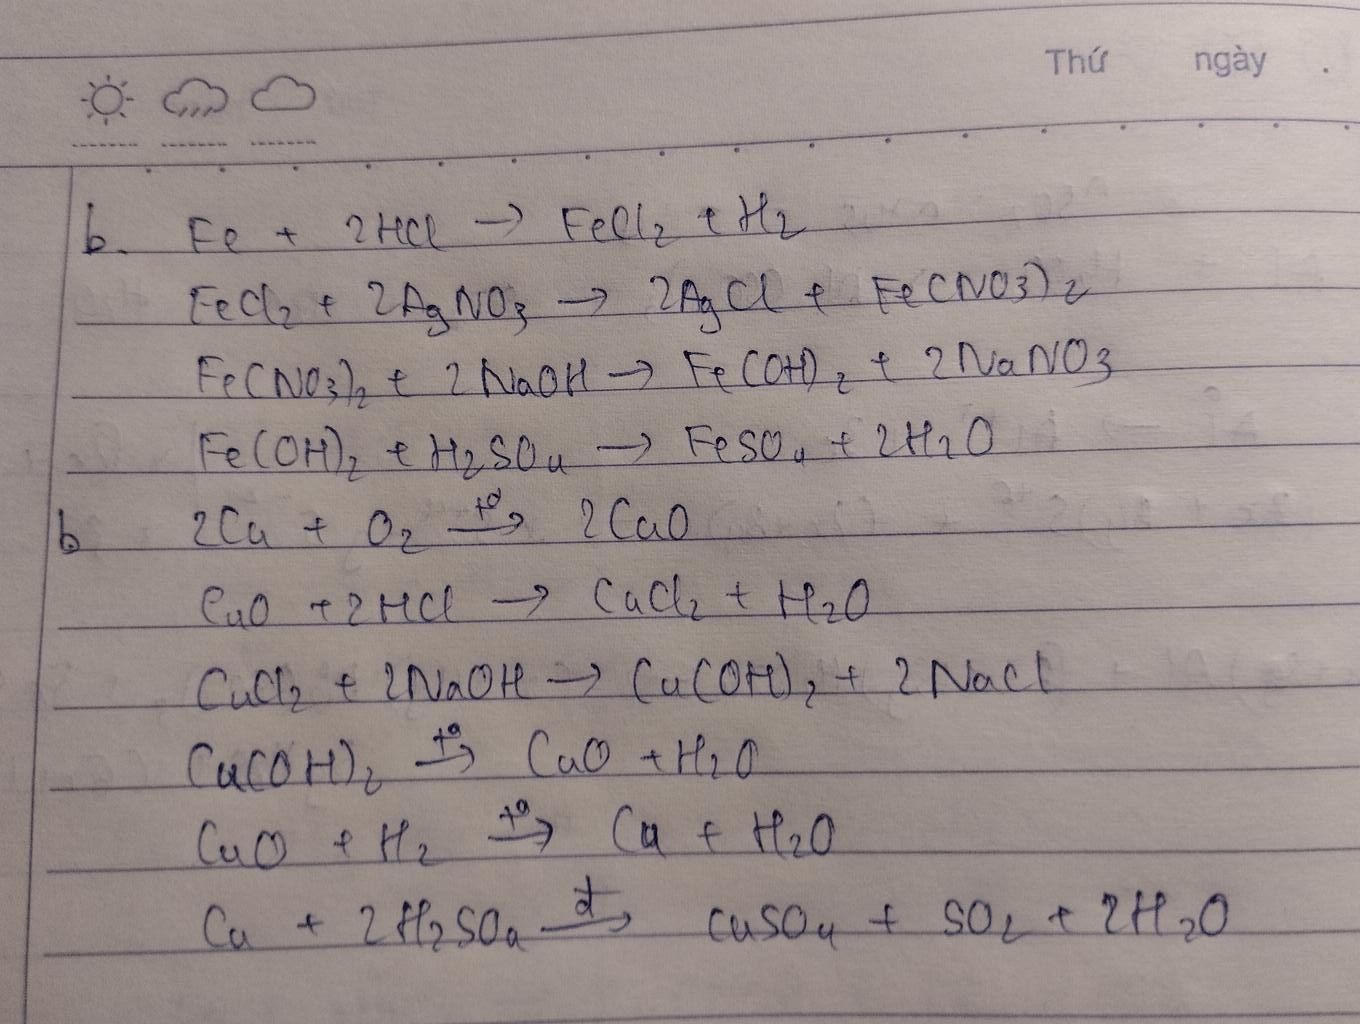 Thứ ngày .
b. Fe + 2HCl → FeCl₂ + H₂
FeCl₂ + 2AgNO₃ → 2AgCl + Fe(NO₃)₂
Fe(NO₃)₂ + 2NaOH → Fe(OH)₂ + 2NaNO₃
Fe(OH)₂ + H₂SO₄ → FeSO₄ + 2H₂O
b 2Cu + O₂ —t°→ 2CuO
CuO + 2HCl → CuCl₂ + H₂O
CuCl₂ + 2NaOH → Cu(OH)₂ + 2NaCl
Cu(OH)₂ —t°→ CuO + H₂O
CuO + H₂ —t°→ Cu + H₂O
Cu + 2H₂SO₄ —đ→ CuSO₄ + SO₂ + 2H₂O